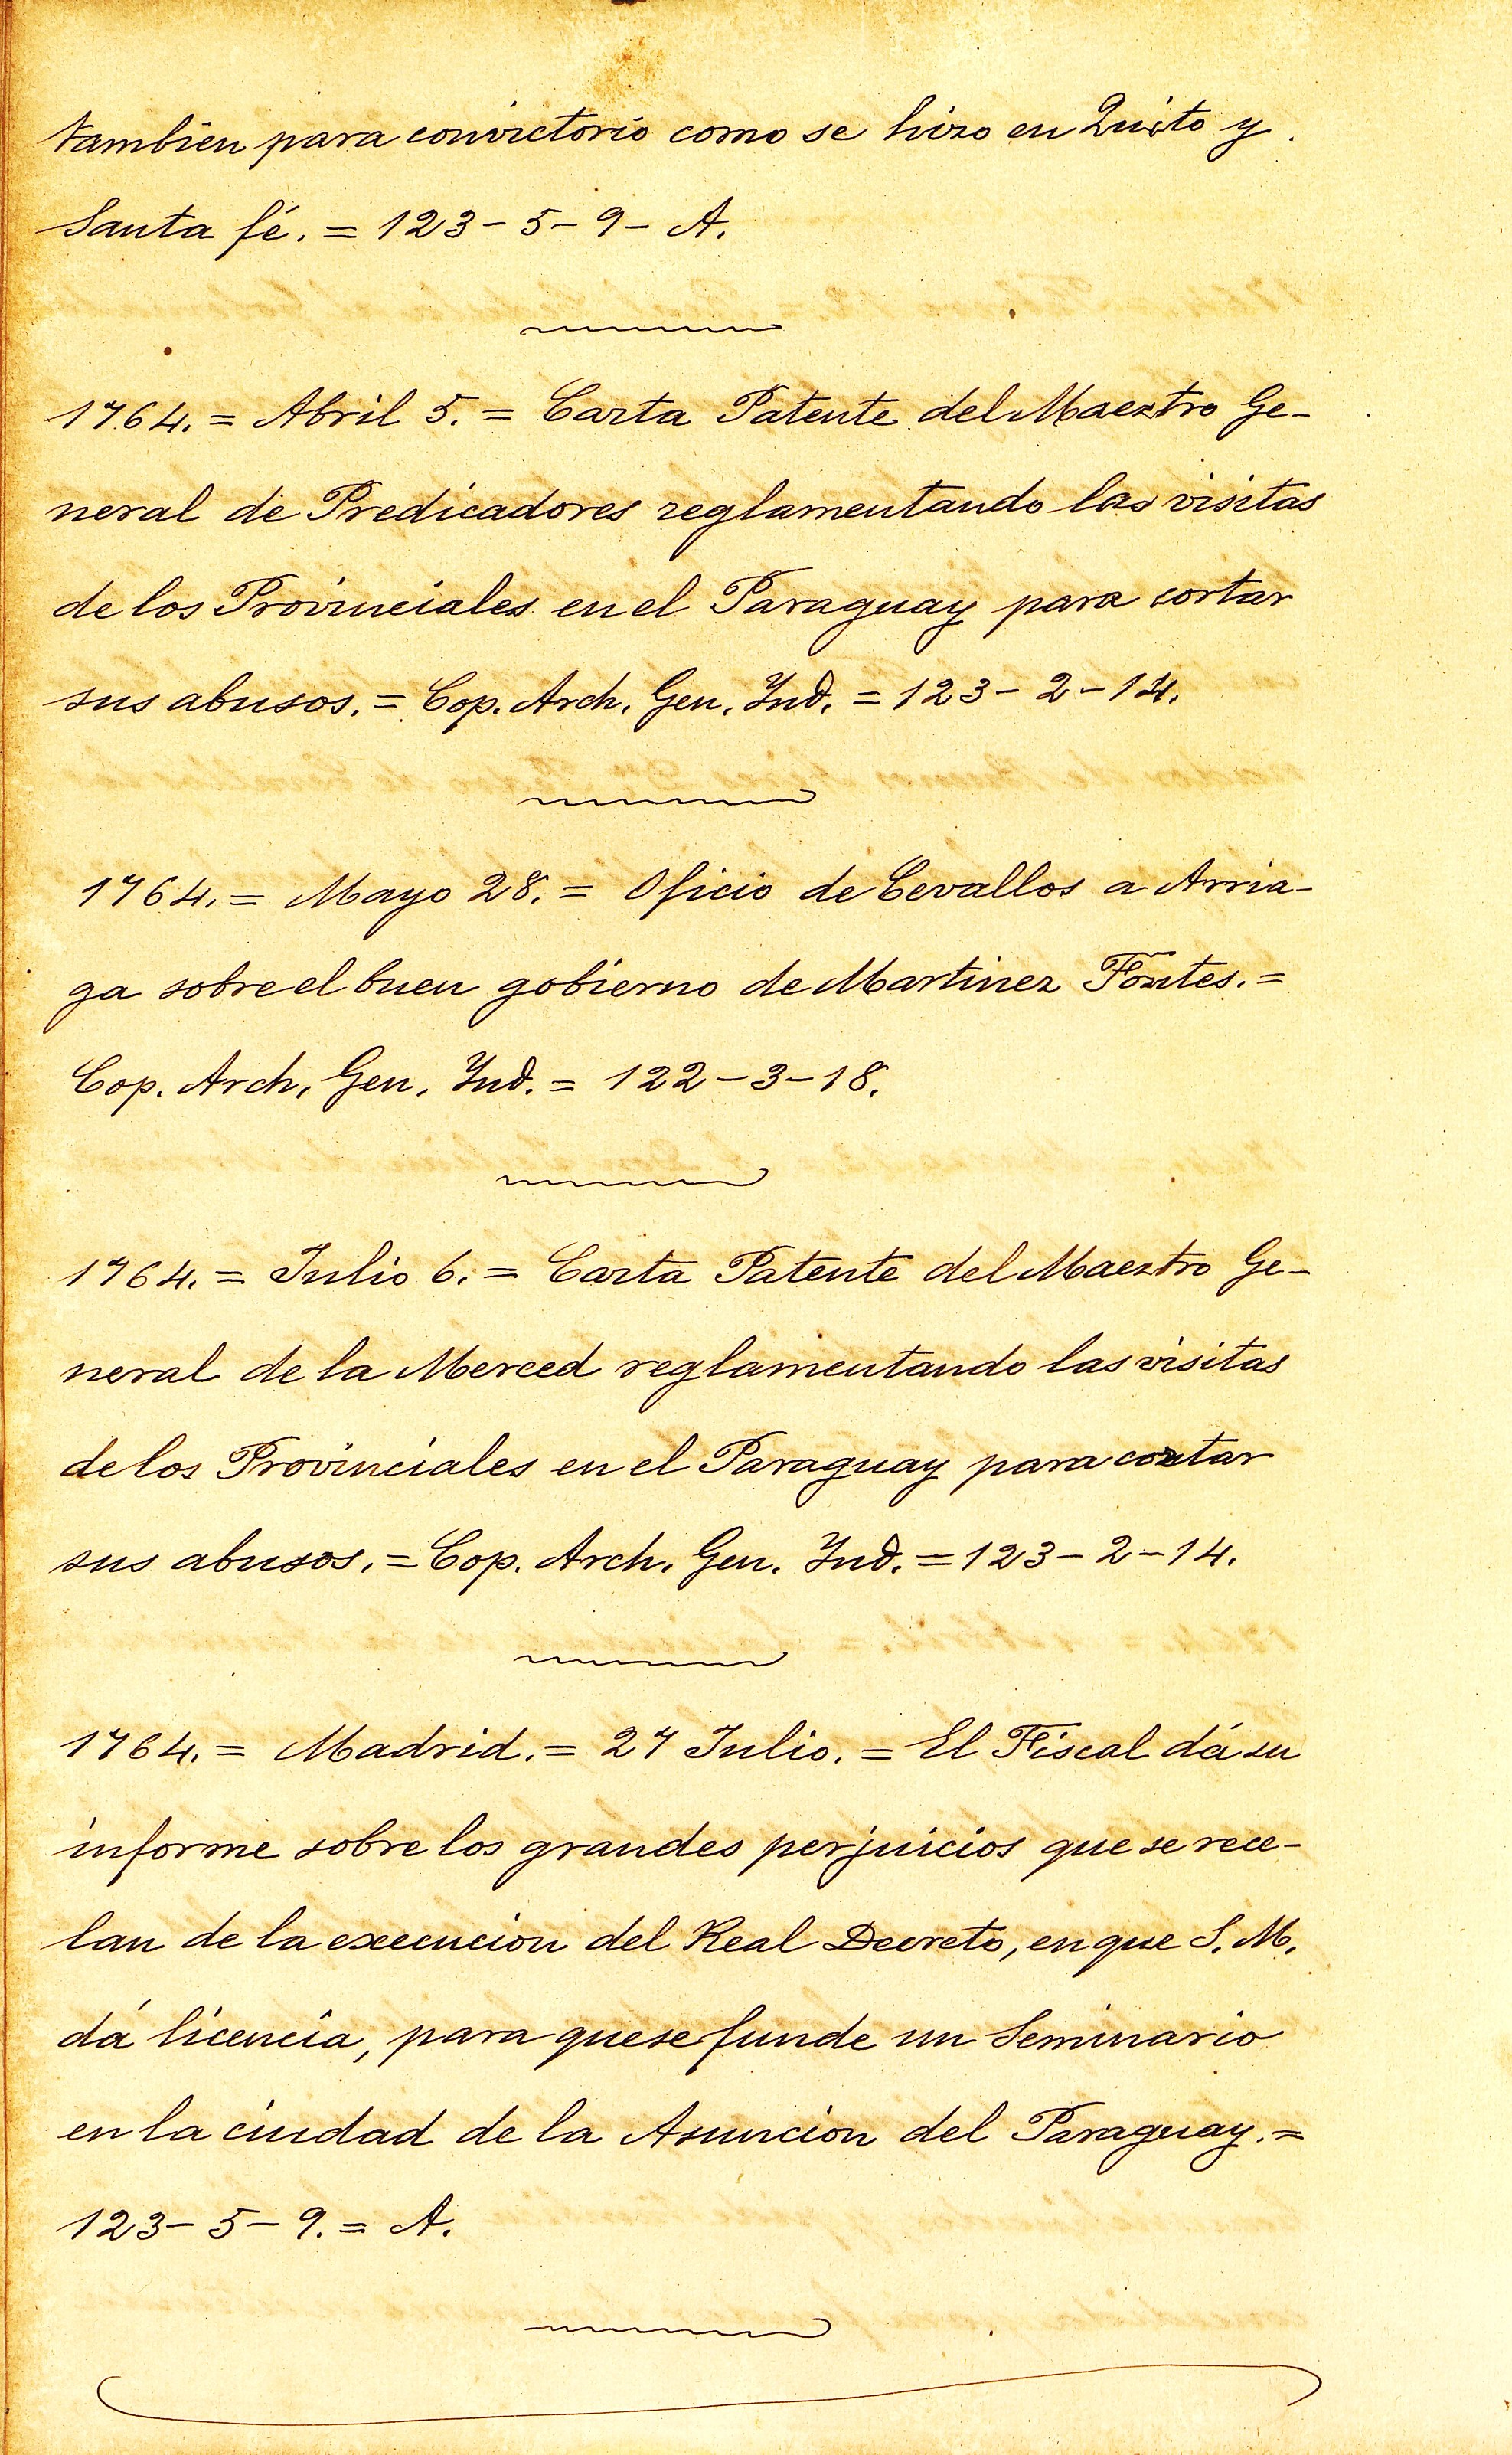 tambien para convictorio como se hizo en Quito y
Santa fé. = 123 - 5 - 9 - A.
1764. = Abril 5. = Carta Patente del Maestro Ge-
neral de Predicadores reglamentando las visitas
de los Provinciales en el Paraguay para cortar
sus abusos. = Cop. Arch. Gen. Ind. = 123 - 2 - 14.
1764. = Mayo 28. = Oficio de Cevallos a Arria-
ga sobre el buen gobierno de Martinez Fontes. =
Cop. Arch. Gen. Ind. = 122 - 3 - 18.
1764. = Julio 6. = Carta Patente del Maestro Ge-
neral de la Merced reglamentando las visitas
de los Provinciales en el Paraguay para cortar
sus abusos. = Cop. Arch. Gen. Ind. = 123 - 2 - 14.
1764. = Madrid. = 27 Julio. = El Fiscal dá su
informe sobre los grandes perjuicios que se rece-
lan de la execucion del Real Decreto, en que S. M.
dá licencia, para que se funde un Seminario
en la ciudad de la Asuncion del Paraguay. =
123 - 5 - 9. = A.